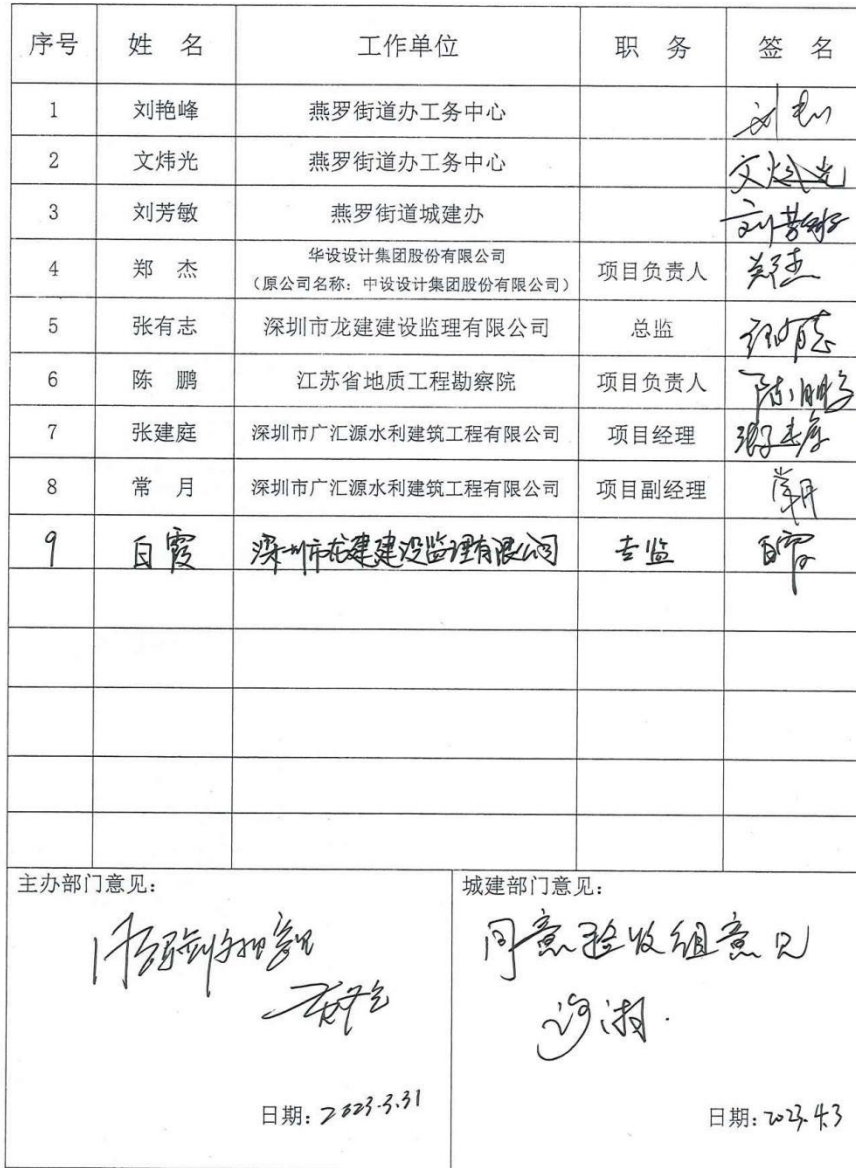 序号 姓 名 工作单位 职 务 签 名
1 刘艳峰 燕罗街道办工务中心
2 文炜光 燕罗街道办工务中心 文炜光
3 刘芳敏 燕罗街道城建办 刘芳敏
4 郑 杰 华设设计集团股份有限公司 项目负责人 郑杰
（原公司名称：中设设计集团股份有限公司）
5 张有志 深圳市龙建建设监理有限公司 总监 张有志
6 陈 鹏 江苏省地质工程勘察院 项目负责人 陈鹏
7 张建庭 深圳市广汇源水利建筑工程有限公司 项目经理 张建庭
8 常 月 深圳市广汇源水利建筑工程有限公司 项目副经理 常月
9 白霞 深圳市龙建建设监理有限公司 专监 白霞
主办部门意见：
日期：2023.3.31
城建部门意见：
同意验收组意见
日期：2023.4.3